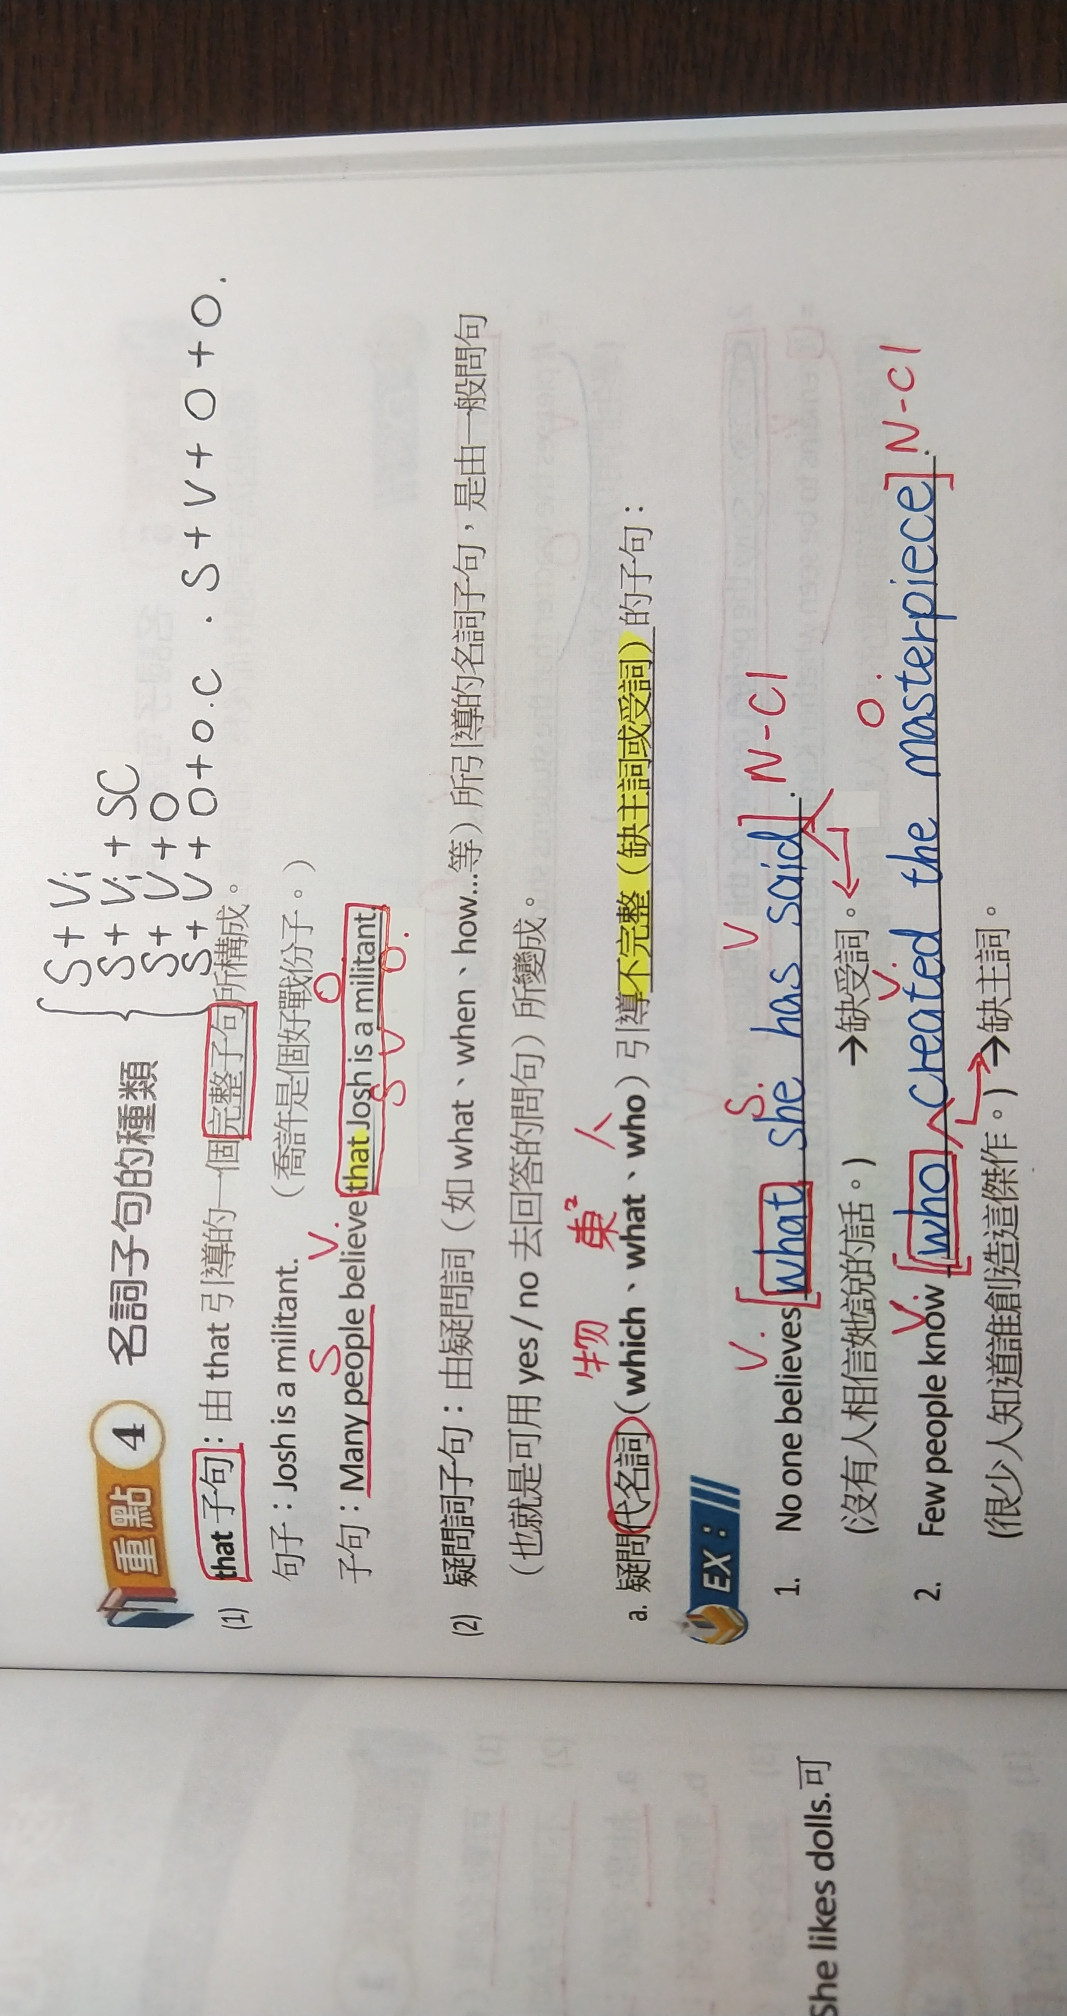 S + Vi
S + Vi + SC
S + V + O
S + V + O + O.C . S + V + O + O .
重點 4 名詞子句的種類
(1) that 子句：由 that 引導的一個完整子句所構成。
句子：Josh is a militant. （喬許是個好戰份子。）
S V. O
子句：Many people believe that Josh is a militant.
S V O.
(2) 疑問詞子句：由疑問詞（如 what、when、how…等）所引導的名詞子句，是由一般問句
（也就是可用 yes / no 去回答的問句）所變成。
物 東² 人
a. 疑問代名詞（which、what、who）引導不完整（缺主詞或受詞）的子句：
EX：
V. S. V
1. No one believes [what she has said]. N-Cl
(沒有人相信她說的話。) →缺受詞。
V V. O.
2. Few people know [who created the masterpiece]. N-Cl
(很少人知道誰創造這傑作。) →缺主詞。
She likes dolls.可